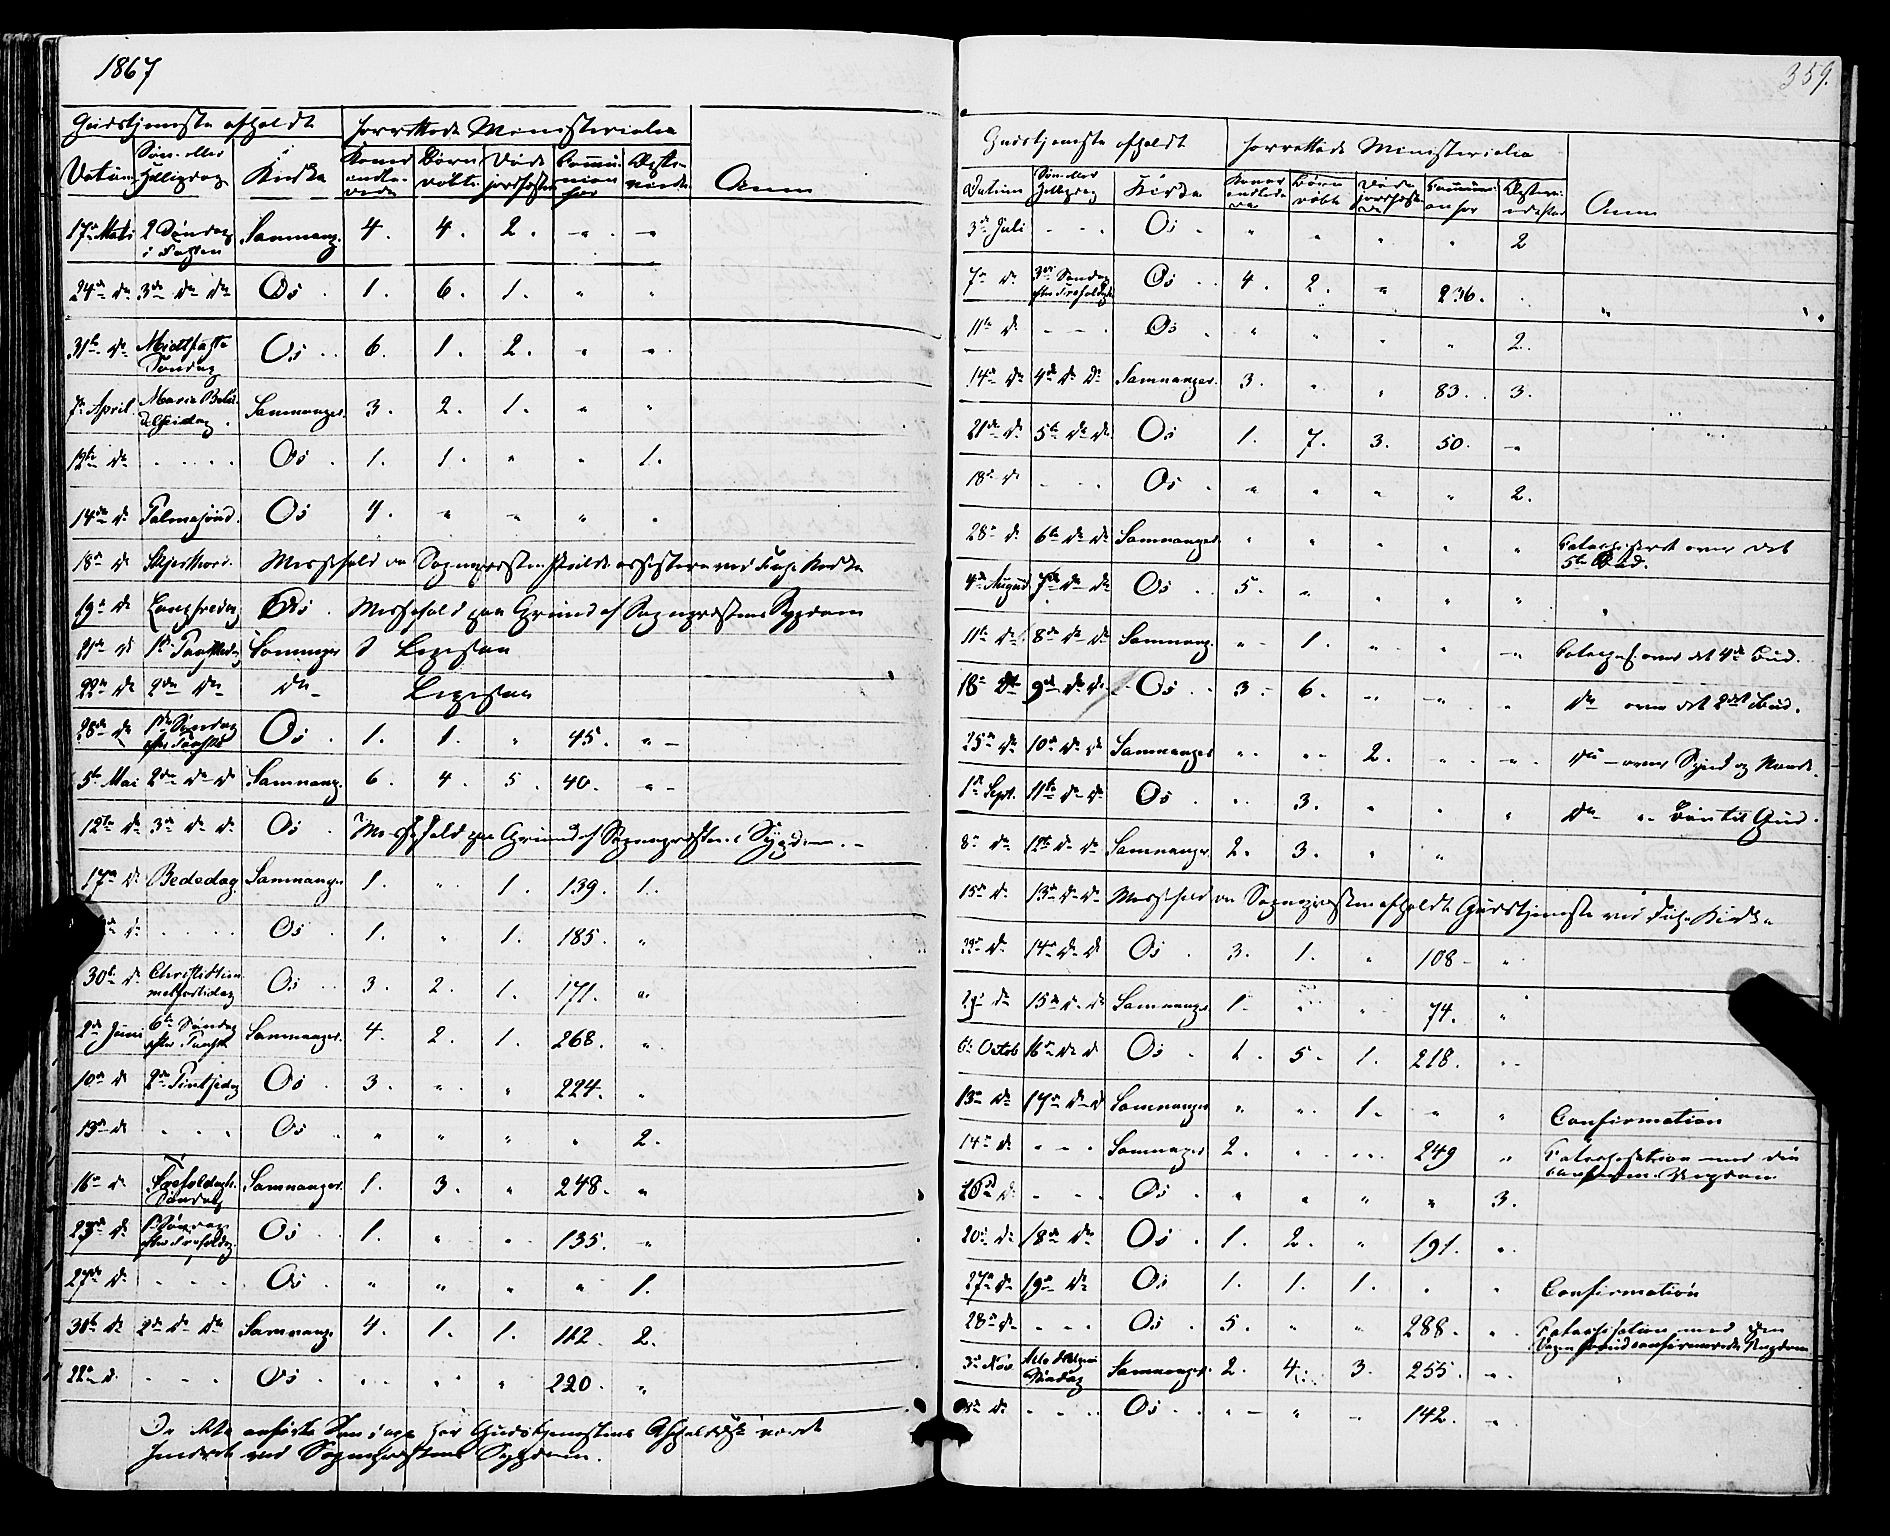 1867
Gudstjeneste afholdt
forrettede Ministerialia
Datum
Søn- eller Helligdag
Kirke
Børn døbte
Døde jordfæstede
Anm
17de Mats 2 Søndag i Fasten Samnang. 4. 4. 2. " "
24de do 3die do do Os 1. 6. 1. " "
31te do Midtfaste Søndag Os 6. 1. 2. " "
7de April Maria Bebudelsesdag Samnanger 3. 2. 1. " "
12te do Os 1. 1. " " 1.
14de do Palmesønd. Os 4. " " " "
18de do Skjærthorsd. Messefald da Sognepræsten skulde assistere ved Kirke
19de do Langfredag Os Messefald paa Grund af Sognepræstens Sygdom
21de do 1ste Paaskedag Samnanger
22de do 2den do do
28de do 1ste Søndag efter Paaske Os 1. 1. " 45. "
5te Mai 2den do do Samnang. 6. 4. 5. 40. "
12te do 3die do do Os Messefald paa Grund af Sognepræstens Sygdom.
17de do Bededag Samnanger 1. " 1. 139. 1.
do Os 1. " 1. 185. "
30te do Christi Himmelfartsdag Os 3. 2. 1. 171. "
2den Juni 6te Søndag efter Paaske Samnanger. 4. 2. 1. 268. "
10de do 2den Pintsedag Os 3. " " 224. "
13de do Os " " " " 2.
16de do Trefoldigh. Søndag Samnanger. 1. 3. " 248. "
23de do 1ste Søndag efter Trefoldig. Os 1. " " 135. "
27de do Os " " " " 1.
30te do 2den do do Samnang. 4. 1. 1. 112. 2.
22de do Os " " " 220. "
De ikke anførte Søndage har Gudstjenestens Afholdelse været
hindret ved Sognepræstens Sygdom.
359.
Gudstjeneste afholdt
forrettede Ministerialia
Datum
Søn- eller Helligdag
Kirke
Børn døbte
Døde jordfæstede
Anm
3die Juli Os " " " " 2
7de do 3die Søndag efter Trefoldigh. Os 4. 2. " 236.
11te do Os " " " " 2.
14de do 4de do do Samnanger. 3. " " 83. 3.
21de do 5te do do Os 1. 7. 3. 50. "
18de do Os " " " " 2.
28de do 6te do do Samnanger " " " " " Catechiseret over det 5te Bud.
4de August 7de do do Os 5. " " " "
11te do 8de do do Samnang. " 1. " " " Catechis. over det 4de Bud.
18de do 9de do do Os 3. 6. " " " do over det 2det Bud.
25de do 10de do do Samnanger " " 2. " " do over Synd og Naade.
1ste Sept. 11te do do Os " 3. " " " do " Bøn til Gud.
8de do 12te do do Samnanger 2. 3. " "
15de do 13de do do Messefald da Sognepræsten afholdt Gudstjeneste ved Kirke
22de do 14de do do Os 3. 1. " 108 "
29de do 15de do do Samnanger 1. " " 74. "
6te Octob 16de do do Os 1. 5. 1. 218. "
13de do 17de do do Samnanger " " 1. " " Confirmation
14de do Samnanger 2. " " 249 " Catechisation med den confirm. Ungdom
do Os " " " " 3.
20de do 18de do Os 1. 2. " 191. "
27de do 19de do Os 1. 1. 1. " " Confirmation
28de do Os 5. " " 288. " Catechisation med den Dagen forud confirmerede Ungdom
3die Nov Alle Helgens Søndag Samnanger. 2. 4. 3. 255. "
do Os " " " 142. "